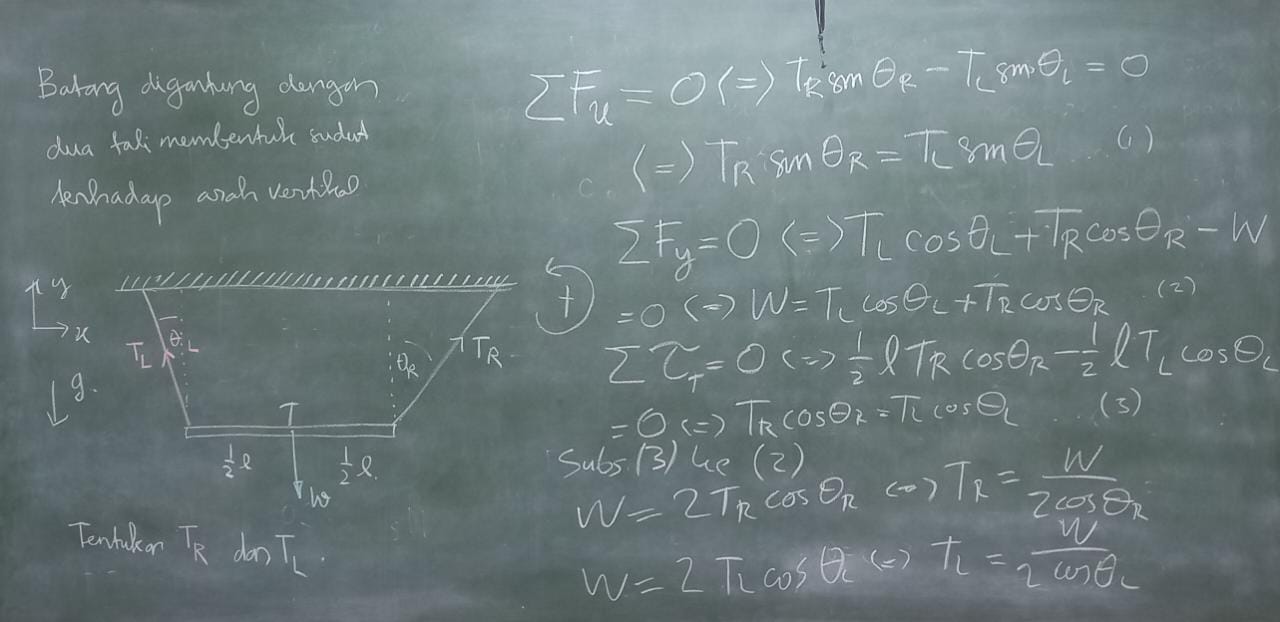 Batang digantung dengan
dua tali membentuk sudut
terhadap arah vertikal
y
x
g.
T_L
θ_L
θ_R
T_R
T
½ l
½ l.
W
Tentukan T_R dan T_L.
ΣF_x = 0 <=> T_R sin θ_R - T_L sin θ_L = 0
<=> T_R sin θ_R = T_L sin θ_L ... (1)
ΣF_y = 0 <=> T_L cos θ_L + T_R cos θ_R - W
= 0 <=> W = T_L cos θ_L + T_R cos θ_R ... (2)
+
Στ_T = 0 <=> ½ l T_R cos θ_R - ½ l T_L cos θ_L
= 0 <=> T_R cos θ_R = T_L cos θ_L ... (3)
Subs. (3) ke (2)
W = 2 T_R cos θ_R <=> T_R = W / 2 cos θ_R
W = 2 T_L cos θ_L <=> T_L = W / 2 cos θ_L